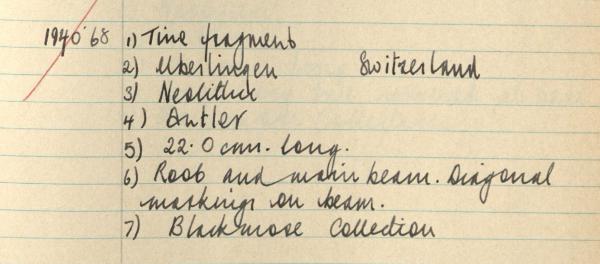 1940·68 1) Tine fragment
2) Uberlingen Switzerland
3) Neolithic
4) Antler
5) 22.0 cm. long.
6) Root and main beam. Diagonal
markings on beam.
7) Blackmore Collection